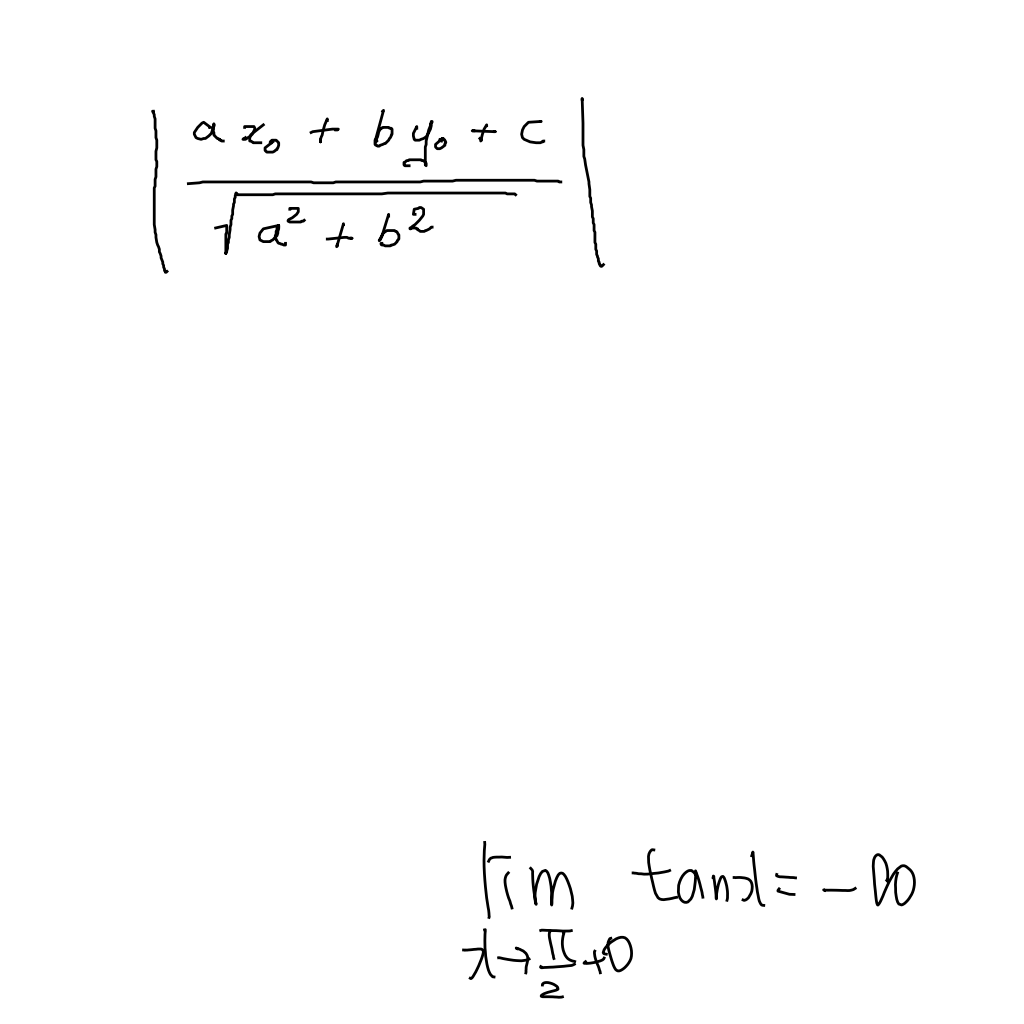 $\left| \frac{a x_0 + b y_0 + c}{\sqrt{a^2 + b^2}} \right|$
$\lim_{x \to \frac{\pi}{2} + 0} \tan x = -\infty$